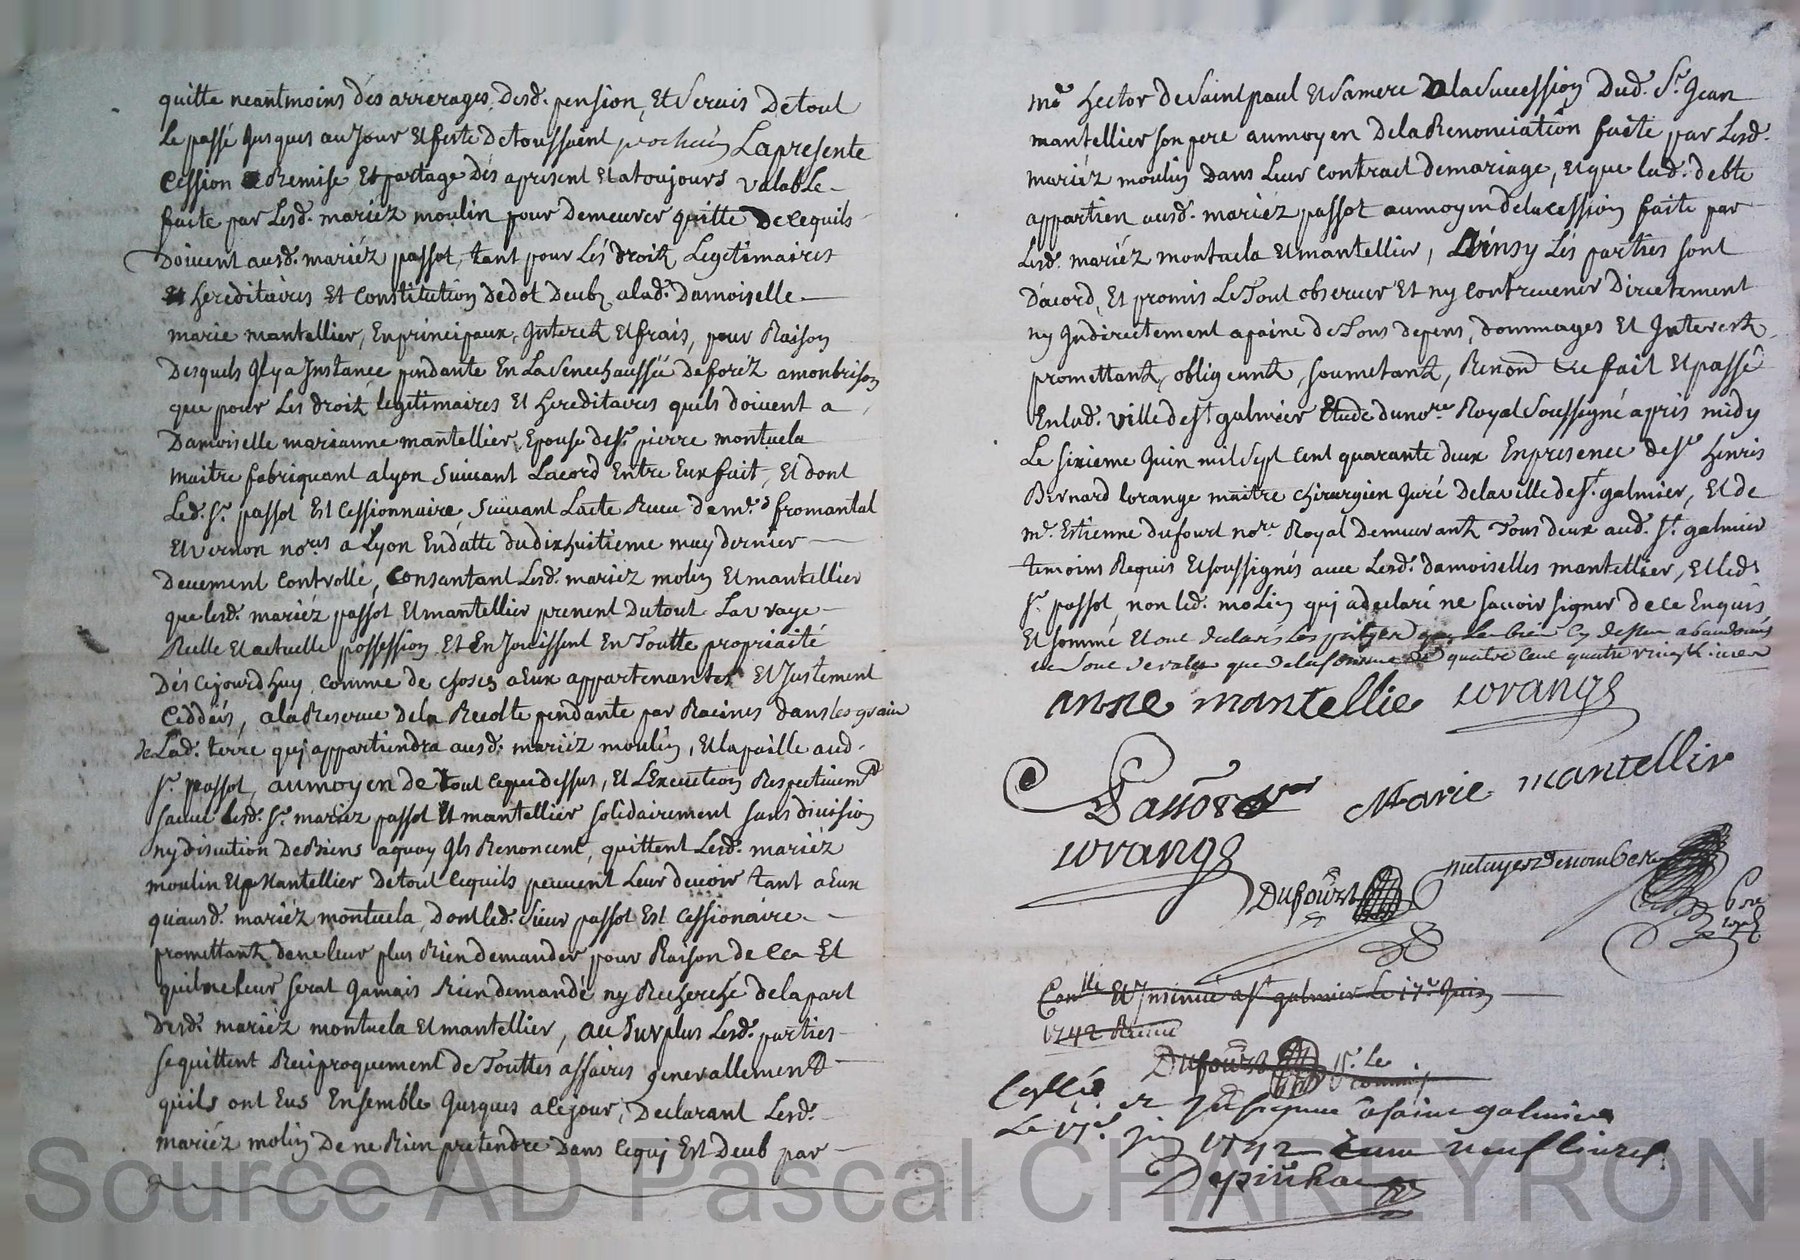 quitte neantmoins des arrerages desd. pension, Et servis de tout
Le passé jusques au Jour Et feste de toussaint prochain La presente
Cession Remise Et partage Dés apresent Et a toujours valable
faite par Lesd. mariéz moulin pour Demeurer quitte de ce quils
Doivent ausd. mariéz passot, tant pour Lés droitz Legitimaires
Et hereditaires Et Constitution de dot Deub a lad. Damoiselle
marie mantellier, En principaux, Interetz Et frais, pour Raison
Desquels Il y a Instance pendante En La senechaussée de foréz a monbrison
que pour Les droitz legitimaires Et hereditaires quils doivent a
Damoiselle marianne mantellier, Epouse de Sr. pierre montuela
maitre fabriquant a lyon suivant Lacord Entre Eux fait, Et dont
Led. Sr. passot Est Cessionnaire suivant Lacte Receu de mes. fromantal
Et vernon nores a Lyon En datte du dix huitieme may dernier
Deuement Controllé, Consantant Lesd. mariéz molin Et mantellier
que lesd. mariéz passot Et mantellier prenent Du tout La vraye
Réelle Et actuelle possession Et En Jouissent En Toutte propriaité
Dés Cejourdhuy, comme de choses a Eux appartenantes Et Justement
Ceddées, a la Reserve de la Recolte pendante par Racines dans les grain
de Lad. terre qui appartiendra ausd. mariéz moulin, Et la paille aud.
Sr. passot, au moyen de tout ce que dessus, Et L'Execution Respectivemt.
Lesd. Sr. mariéz passot Et mantellier solidairement sans division
ny discution De Biens a quoy Ils Renoncent, quittent Lesd. mariéz
moulin Et Mantellier De tout ce quils peuvent Leur devoir tant a Eux
qu'ausd. mariéz montuela, Dont led. Sieur passot Est Cessionaire
promettant de ne leur plus Rien demander pour Raison de ce Et
quil ne leur serat Jamais Rien demandé ny Recherché de la part
Desd. mariéz montuela Et mantellier, au surplus Lesd. parties
se quittent Reciproquement de Touttes affaires generallement
quils ont Eus Ensemble Jusques a ce jour, Declarant Lesd.
mariéz molin De ne Rien pretendre Dans ce qui Est Deub par
me. hector de Saint paul Et sa mere a la Succession Dud. Sr. Jean
mantellier son pere au moyen De la Renonciation faite par Lesd.
mariéz moulin Dans Leur Contract de mariage, Et que lad. debte
appartien ausd. mariéz passot au moyen de la cession faite par
Lesd. mariéz montuela Et mantellier, Ainsy Lés parties sont
D'acord, Et promis Le Tout observer Et ny Contrevenir Directement
ny Indirectement a paine de Tous depens, dommages Et Interestz
promettantz, obligeantz, soumetantz, Renon. fait Et passé
En lad. ville de St galmier Etude du nore. Royal soussigné apres midy
Le sixieme Juin mil sept cent quarante deux En presence de Sr. henris
Bernard lorange maitre chirurgien Juré de la ville de St. galmier, Et de
me. Estienne dufourt nore. Royal Demeurantz Tous deux aud. St. galmier
temoins Requis Et soussignés avec Lesd. Damoiselles mantellier, Et led.
Sr. passot, non led. molin qui a declaré ne savoir signer de ce Enquis
Et sommé Et ont declarés Les parties que Les bien cy dessus abandonnés
ne sont de valeur que de la somme de quatre cent quatre vingtz livres
anne mantellie lorange
Passot Marie mantellir
lorange
Dufourt
Conllé Et Insinué a St galmier Le 17e Juin
1742 Receu
Dufourt Sr. Le commis
Collé. et Insignue a saint galmier
Le 17e juin 1742 neuf livres
Depiuha
Source AD Pascal CHAREYRON